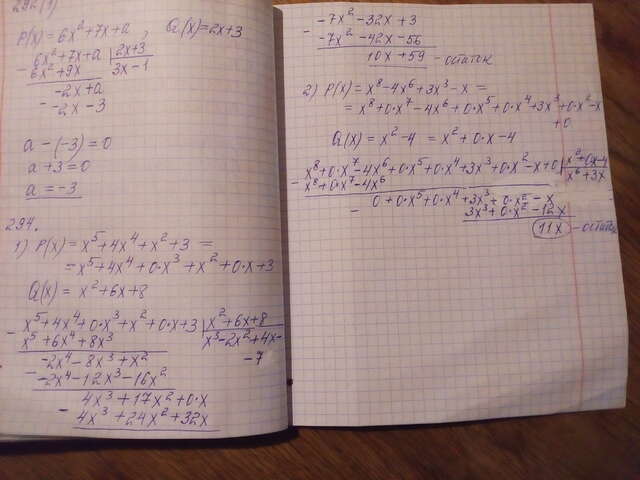 292(1)
P(x) = 6x² + 7x + a, Q(x) = 2x + 3
6x² + 7x + a | 2x + 3
- 6x² + 9x | 3x - 1
-2x + a
- -2x - 3
a - (-3) = 0
a + 3 = 0
a = -3
294.
1) P(x) = x⁵ + 4x⁴ + x² + 3 =
= x⁵ + 4x⁴ + 0·x³ + x² + 0·x + 3
Q(x) = x² + 6x + 8
- x⁵ + 4x⁴ + 0·x³ + x² + 0·x + 3 | x² + 6x + 8
x⁵ + 6x⁴ + 8x³ | x³ - 2x² + 4x -
-2x⁴ - 8x³ + x² - 7
- -2x⁴ - 12x³ - 16x²
4x³ + 17x² + 0·x
- 4x³ + 24x² + 32x
-7x² - 32x + 3
- -7x² - 42x - 56
10x + 59 - остаток
2) P(x) = x⁸ - 4x⁶ + 3x³ - x =
= x⁸ + 0·x⁷ - 4x⁶ + 0·x⁵ + 0·x⁴ + 3x³ + 0·x² - x
+ 0
Q(x) = x² - 4 = x² + 0·x - 4
- x⁸ + 0·x⁷ - 4x⁶ + 0·x⁵ + 0·x⁴ + 3x³ + 0·x² - x + 0 | x² + 0x - 4
x⁸ + 0·x⁷ - 4x⁶ | x⁶ + 3x
0 + 0·x⁵ + 0·x⁴ + 3x³ + 0·x² - x
- 3x³ + 0·x² - 12x
11x - остаток